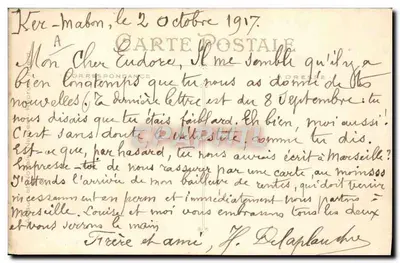 Ker-Mabon, le 2 Octobre 1917.
A
CARTE POSTALE
Mon Cher Eudore, Il me semble qu'il y a
CORRESPONDANCE
bien longtemps que tu nous as donné de tes
nouvelles; ta dernière lettre est du 8 Septembre: tu
nous disais que tu étais faiblard. Eh bien, moi aussi!
C'est sans doute comme tu dis.
Est-ce que, par hasard, tu nous aurais écrit à Marseille?
Empresse-toi de nous rassurer par une carte, au moins
J'attends l'arrivée de mon bailleur de rentes, qui doit venir
incessamment en perm et immédiatement nous partons à
Marseille. Louise et moi vous embrassons tous les deux
et vous serrons la main
Frère et ami, H.